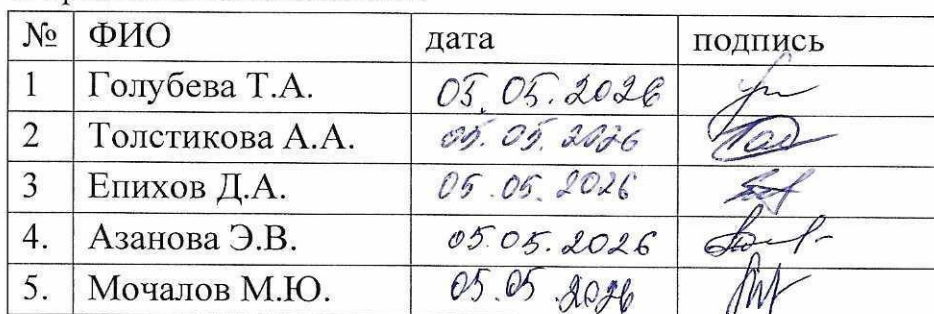 № ФИО дата подпись
1 Голубева Т.А. 05.05.2026
2 Толстикова А.А. 05.05.2026
3 Епихов Д.А. 05.05.2026
4. Азанова Э.В. 05.05.2026
5. Мочалов М.Ю. 05.05.2026